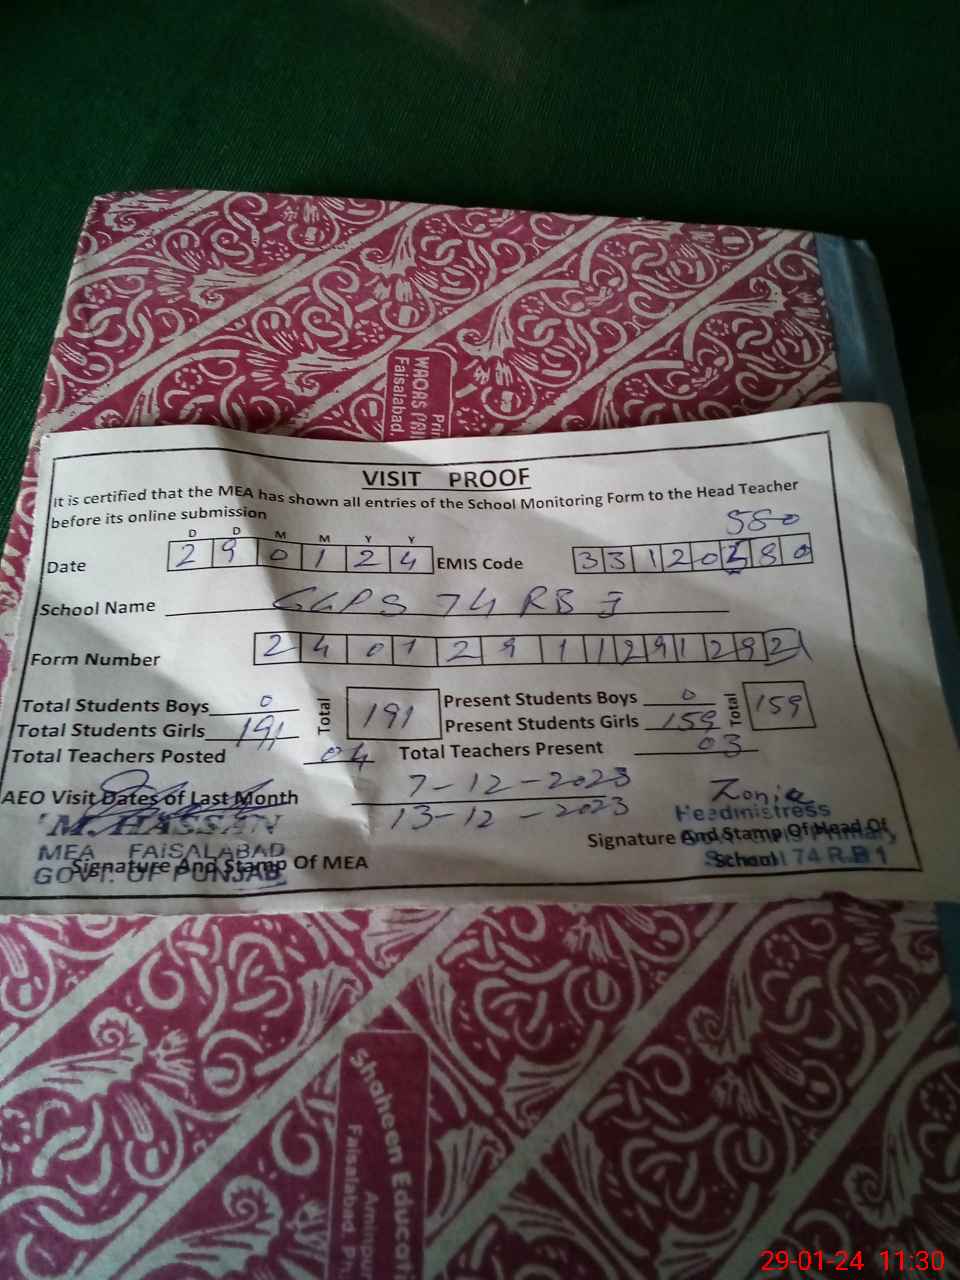 WAQAS
Faisalabad.
VISIT PROOF
It is certified that the MEA has shown all entries of the School Monitoring Form to the Head Teacher
before its online submission
580
D D M M Y Y
Date 2 9 0 1 2 4 EMIS Code 3 3 1 2 0 5 8 0
School Name GGPS 74 RB I
Form Number 2 4 0 1 2 9 1 1 2 9 1 2 9 2
Total Students Boys 0 Total 191 Present Students Boys 0 Total 159
Total Students Girls 191 Present Students Girls 159
Total Teachers Posted 04 Total Teachers Present 03
AEO Visit Dates of Last Month 7-12-2023
13-12-2023
Zonia
M. HASSAN
MEA FAISALABAD
GOVT. OF PUNJAB
Signature And Stamp Of MEA
Headmistress
Signature And Stamp Of Head Of
Primary
School 74 R.B 1
Shaheen
Faisalabad
29-01-24 11:30